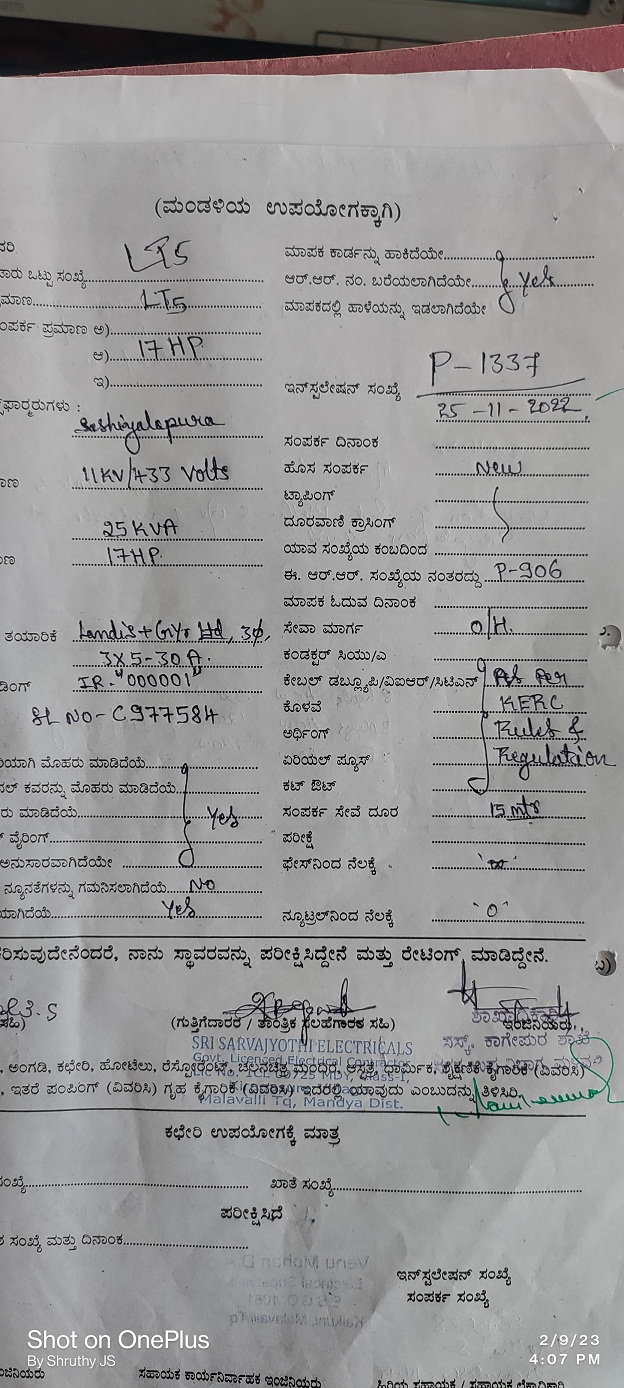 (ಮಂಡಳಿಯ ಉಪಯೋಗಕ್ಕಾಗಿ)
LT5
ಒಟ್ಟು ಸಂಖ್ಯೆ
LT5
ಪ್ರಮಾಣ ಅ)
ಆ) 17 HP
ಇ)
Seshiyalapura
11KV/433 Volts
25 KVA
17HP
ತಯಾರಿಕೆ Landis + Gyr Ltd, 3ø,
3X5-30 A.
IR-"000001"
SL NO-C977584
ಮೊಹರು ಮಾಡಿದೆಯೆ
ಕವರನ್ನು ಮೊಹರು ಮಾಡಿದೆಯೆ
ಮಾಡಿದೆಯೆ Yes
ವೈರಿಂಗ್
ಅನುಸಾರವಾಗಿದೆಯೇ
ನ್ಯೂನತೆಗಳನ್ನು ಗಮನಿಸಲಾಗಿದೆಯೆ NO
Yes
ಮಾಪಕ ಕಾರ್ಡನ್ನು ಹಾಕಿದೆಯೇ
ಆರ್.ಆರ್. ನಂ. ಬರೆಯಲಾಗಿದೆಯೇ Yes
ಮಾಪಕದಲ್ಲಿ ಹಾಳೆಯನ್ನು ಇಡಲಾಗಿದೆಯೇ
ಇನ್‌ಸ್ಟಲೇಷನ್ ಸಂಖ್ಯೆ P-1337
25-11-2022
ಸಂಪರ್ಕ ದಿನಾಂಕ
ಹೊಸ ಸಂಪರ್ಕ New
ಟ್ಯಾಪಿಂಗ್
ದೂರವಾಣಿ ಕ್ರಾಸಿಂಗ್
ಯಾವ ಸಂಖ್ಯೆಯ ಕಂಬದಿಂದ
ಈ. ಆರ್.ಆರ್. ಸಂಖ್ಯೆಯ ನಂತರದ್ದು P-906
ಮಾಪಕ ಓದುವ ದಿನಾಂಕ
ಸೇವಾ ಮಾರ್ಗ O/H.
ಕಂಡಕ್ಟರ್ ಸಿಯು/ಎ
ಕೇಬಲ್ ಡಬ್ಲ್ಯೂಪಿ/ವಿಐಆರ್/ಸಿಟಿಎಸ್ As Per
ಕೊಳವೆ KERC
ಅರ್ಥಿಂಗ್ Rules &
ಏರಿಯಲ್ ಪ್ಯೂಸ್ Regulation
ಕಟ್ ಔಟ್
ಸಂಪರ್ಕ ಸೇವೆ ದೂರ 15 mtr
ಪರೀಕ್ಷೆ
ಫೇಸ್‌ನಿಂದ ನೆಲಕ್ಕೆ
ನ್ಯೂಟ್ರಲ್‌ನಿಂದ ನೆಲಕ್ಕೆ "0"
ನಾನು ಸ್ಥಾವರವನ್ನು ಪರೀಕ್ಷಿಸಿದ್ದೇನೆ ಮತ್ತು ರೇಟಿಂಗ್ ಮಾಡಿದ್ದೇನೆ.
ಸಹಿ) (ಗುತ್ತಿಗೆದಾರರ / ತಾಂತ್ರಿಕ ಸಲಹೆಗಾರರ ಸಹಿ)
SRI SARVAJYOTHI ELECTRICALS
Govt. Licenced Electrical Contractor
Malavalli Tq, Mandya Dist.
ಅಂಗಡಿ, ಕಛೇರಿ, ಹೋಟೆಲು, ರೆಸ್ಟೋರೆಂಟ್, ಚಲನಚಿತ್ರ ಮಂದಿರ, ಆಸ್ಪತ್ರೆ, ಧಾರ್ಮಿಕ, ಶೈಕ್ಷಣಿಕ ಕೈಗಾರಿಕೆ (ವಿವರಿಸಿ)
ಇತರೆ ಪಂಪಿಂಗ್ (ವಿವರಿಸಿ) ಗೃಹ ಕೈಗಾರಿಕೆ (ವಿವರಿಸಿ) ಇದರಲ್ಲಿ ಯಾವುದು ಎಂಬುದನ್ನು ತಿಳಿಸಿರಿ.
ಕಛೇರಿ ಉಪಯೋಗಕ್ಕೆ ಮಾತ್ರ
ಖಾತೆ ಸಂಖ್ಯೆ
ಪರೀಕ್ಷಿಸಿದೆ
ಸಂಖ್ಯೆ ಮತ್ತು ದಿನಾಂಕ
ಇನ್‌ಸ್ಟಲೇಷನ್ ಸಂಖ್ಯೆ
ಸಂಪರ್ಕ ಸಂಖ್ಯೆ
Shot on OnePlus
By Shruthy JS
2/9/23
4:07 PM
ಸಹಾಯಕ ಕಾರ್ಯನಿರ್ವಾಹಕ ಇಂಜಿನಿಯರು